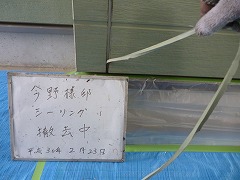 今野様邸
シーリング
撤去中
平成30年2月23日